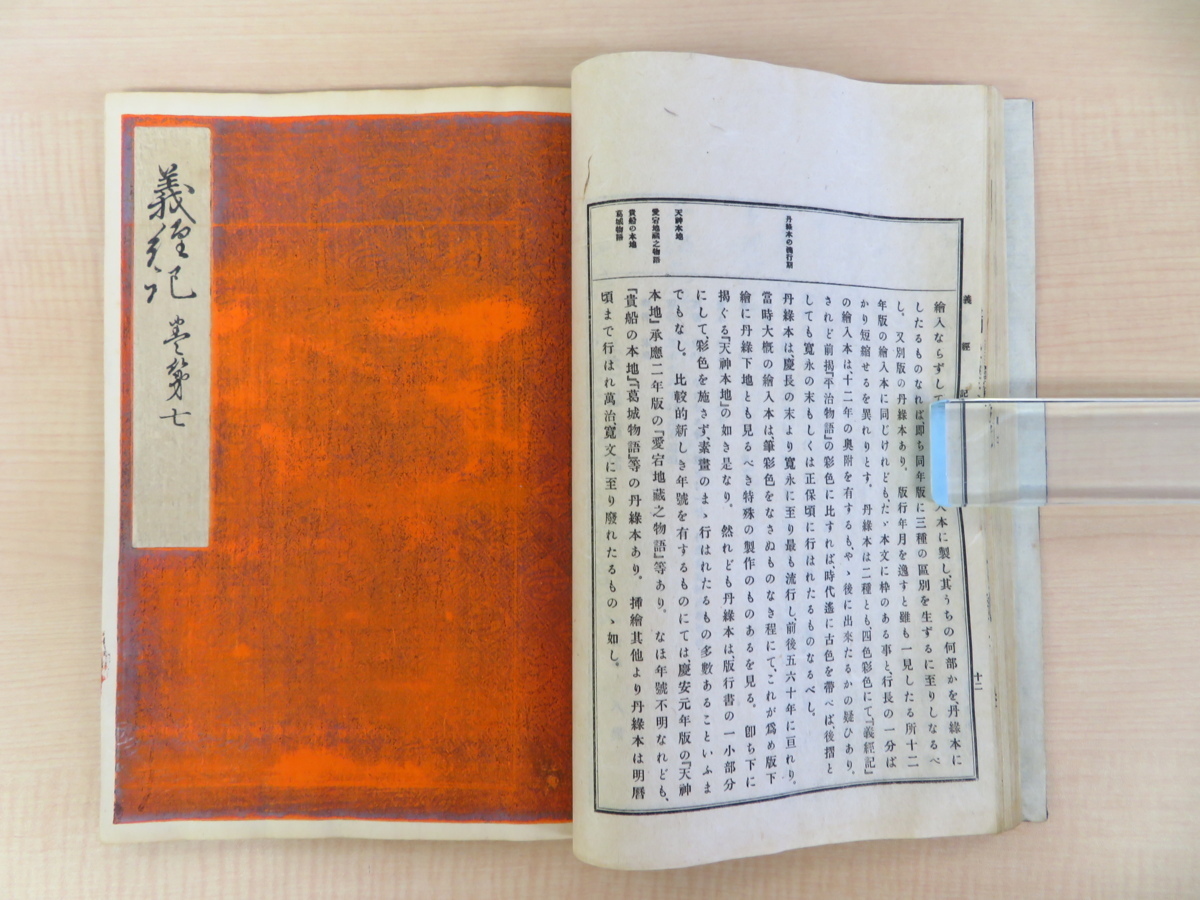 義經記
十二
繪入ならずして
入本に製し、其うちの何部かを、丹綠本に
したるものなれば、即ち同年版に三種の區別を生ずるに至りしなるべ
し。又別版の丹綠本あり。版行年月を逸すと雖も一見したる所十二
年版の繪入本に同じけれども、たゞ本文に枠のある事と、行長の一分ば
かり短縮せるを異れりとす。丹綠本は二種とも、四色彩色にて『義經記』
の繪入本は、十二年の奥附を有するもやゝ後に出來たるかの疑ひあり。
されど前揭『平治物語』の彩色に比すれば、時代遙に古色を帶べば、後摺と
しても寬永の末もしくは正保頃に行はれたるものなるべし。
丹綠本の流行期
丹綠本は、慶長の末より寬永に至り最も流行し、前後五六十年に亘れり。
當時大槪の繪入本は、筆彩色をなさぬものなき程にて、これが爲め版下
繪に丹綠下地とも見るべき特殊の製作のものあるを見る。卽ち下に
揭ぐる『天神本地』の如き是なり。然れども丹綠本は、版行書の一小部分
にして、彩色を施さず、素畫のまゝ行はれたるもの多數あることいふま
でもなし。比較的新しき年號を有するものにては、慶安元年版の『天神
天神本地
愛宕地藏之物語
本地』承應二年版の『愛宕地藏之物語』等あり。なほ年號不明なれども、
貴船の本地
葛城物語
『貴船の本地』『葛城物語』等の丹綠本あり。挿繪其他より丹綠本は明曆
頃まで行はれ萬治、寬文に至り廢れたるものゝ如し。
義經記 巻第七